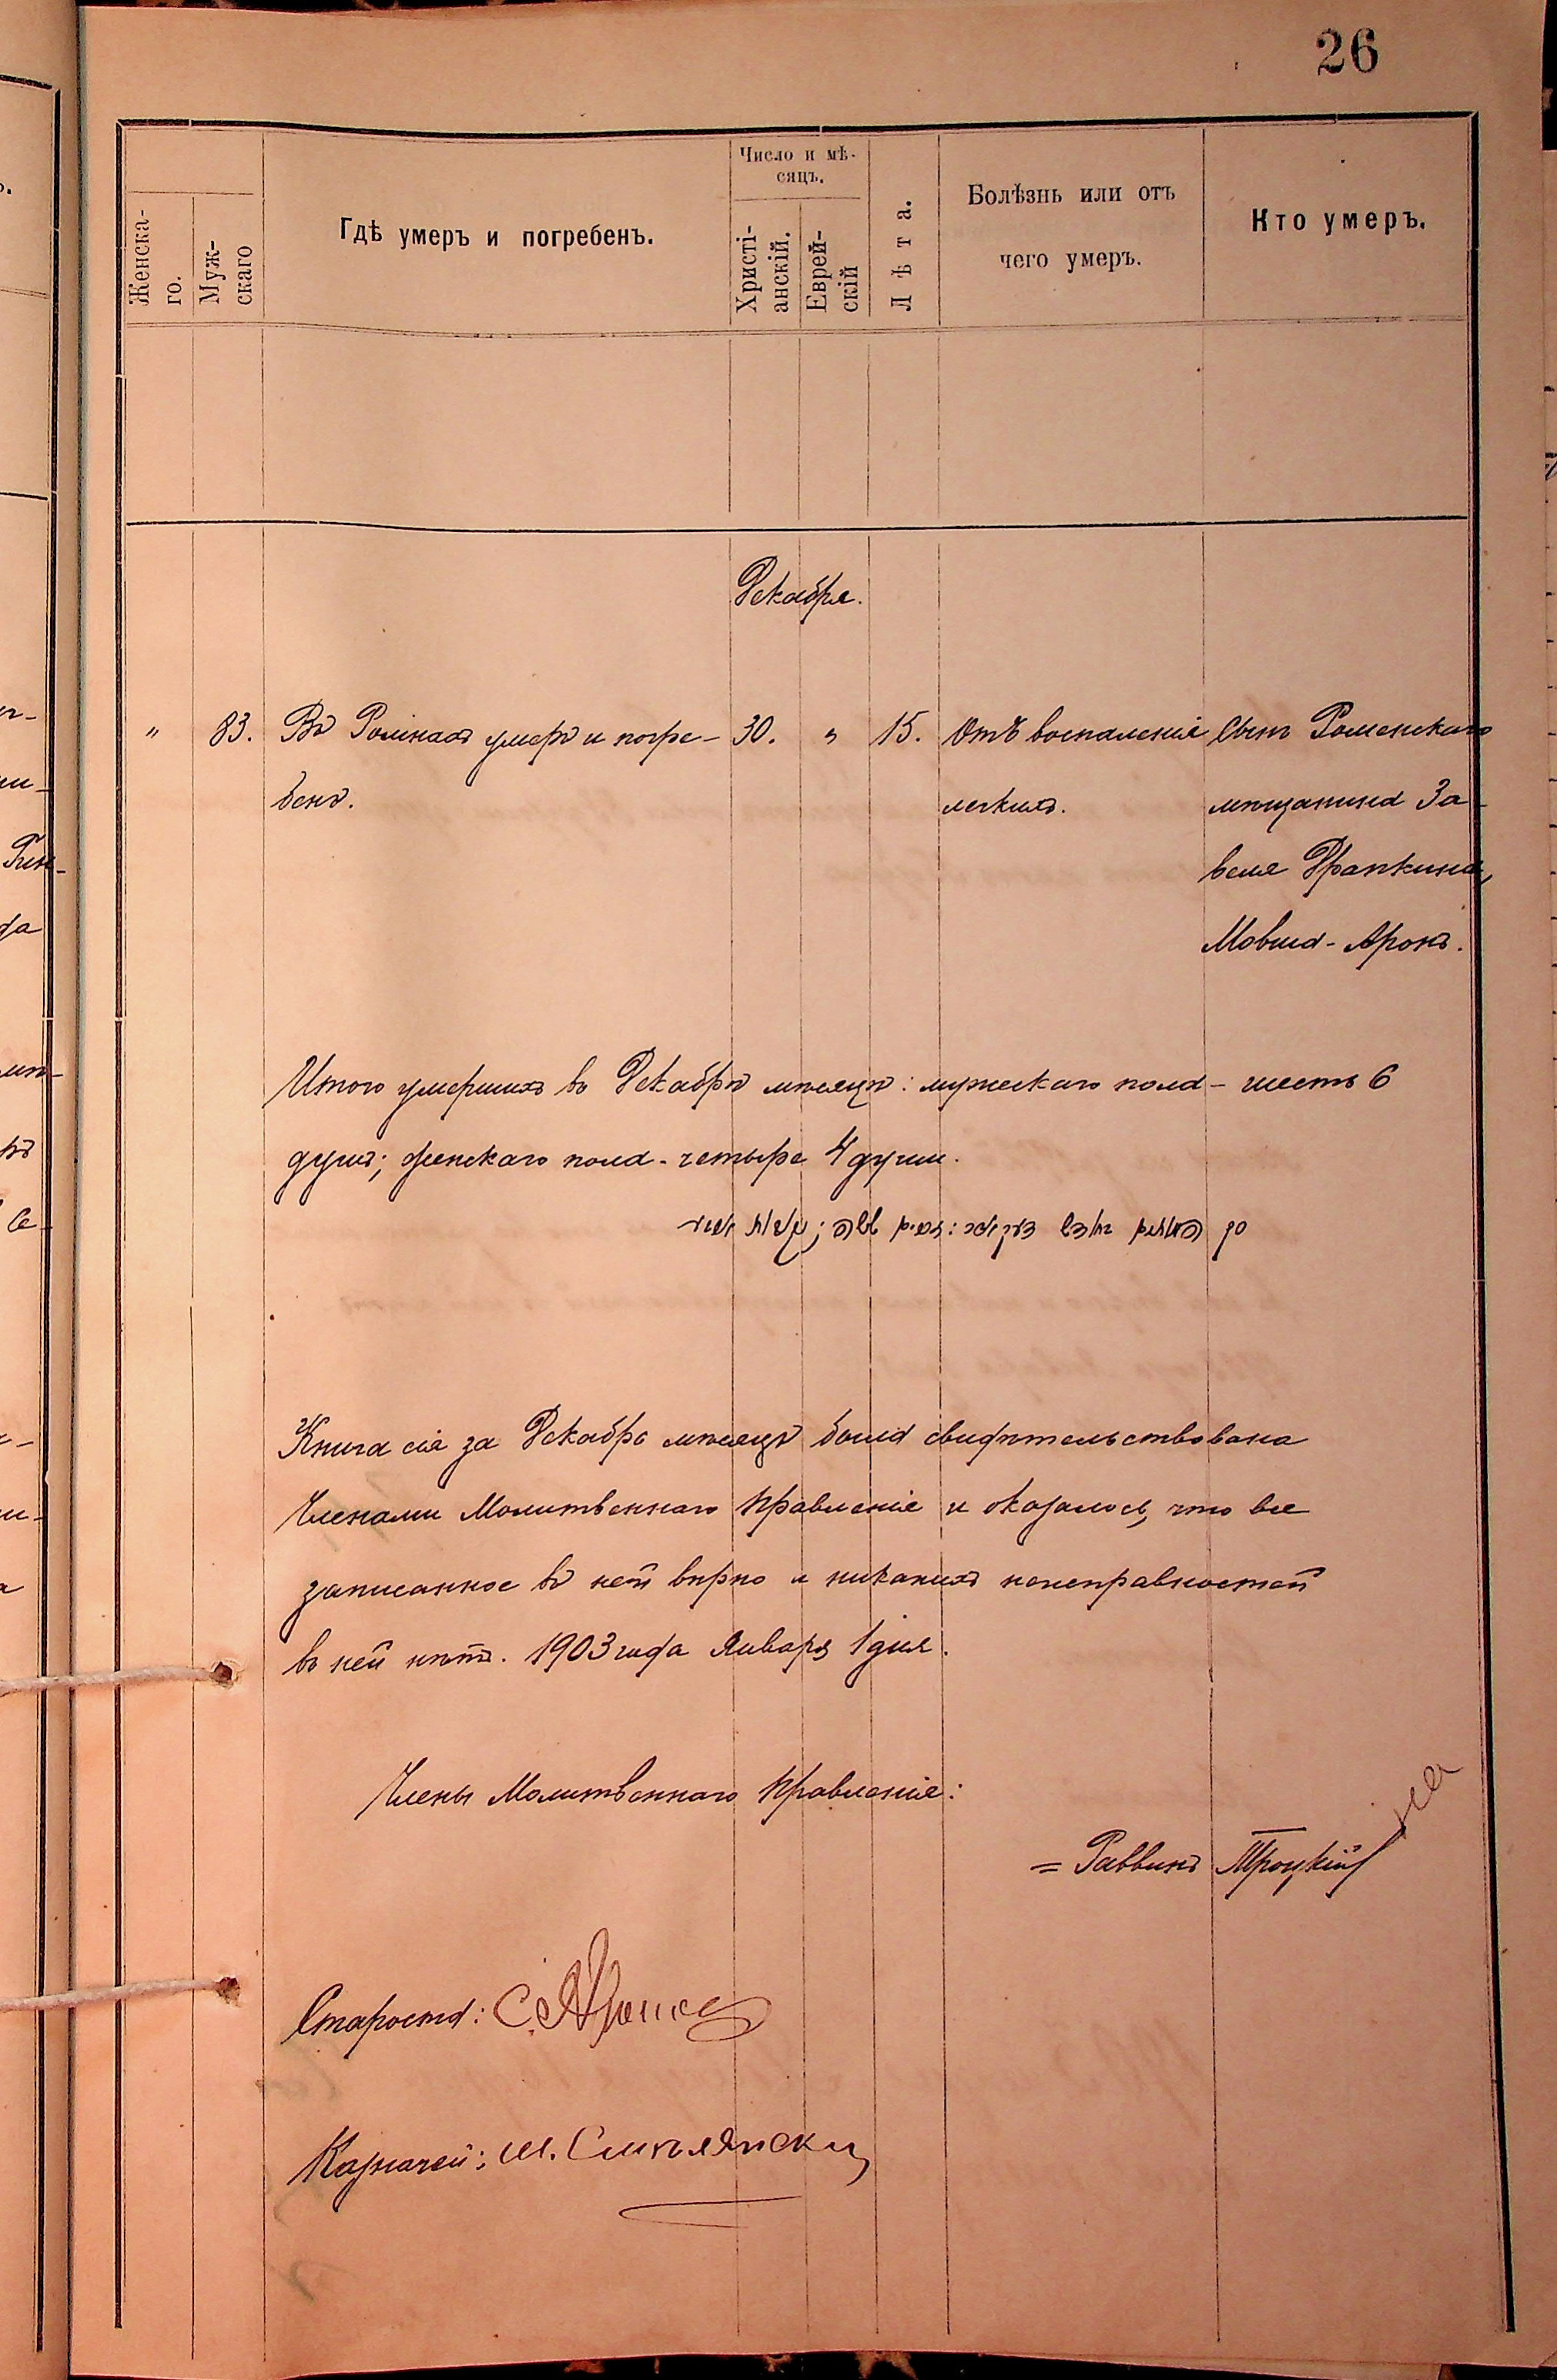 26
Женска-
го.
Муж-
скаго
Гдѣ умеръ и погребенъ.
Число и мѣ-
сяцъ.
Христі-
анскій.
Еврей-
скій
Лѣта.
Болѣзнь или отъ
чего умеръ.
Кто умеръ.
Декабря.
" 83. Въ Ромнахъ умеръ и погре- 30. " 15. Отъ воспаленія Сынъ Роменскаго
бенъ. легкихъ. мѣщанина За-
веля Драпкина,
Мовша-Аронъ.
Итого умершихъ въ Декабрѣ мѣсяцѣ: мужескаго пола - шесть 6
душъ; женскаго пола - четыре 4 души.
Книга сія за Декабрь мѣсяцъ была свидѣтельствована
Членами Молитвеннаго Правленія и оказалось, что все
записанное въ ней вѣрно и никакихъ неисправностей
въ ней нѣтъ. 1903 года Января 1 дня.
Члены Молитвеннаго Правленія:
= Раввинъ Троцкій
Староста: С.
Казначей: М.